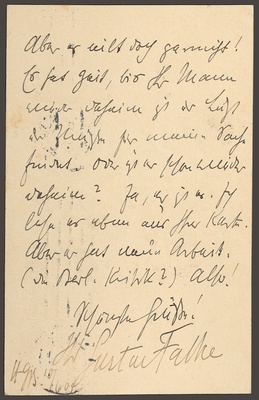 Aber er eilt doch gar nicht!
Er hat Zeit, bis Ihr Mann
wieder daheim ist der Lust
für meine Sache
findet. Oder ist er schon wieder
daheim? Ja, er ist es. Ich
lese es eben aus Ihrer Karte.
Aber er hat neue Arbeit.
(Die Berl. Kritik?) Also!
Schönste Grüße!
Ihr Gustav Falke